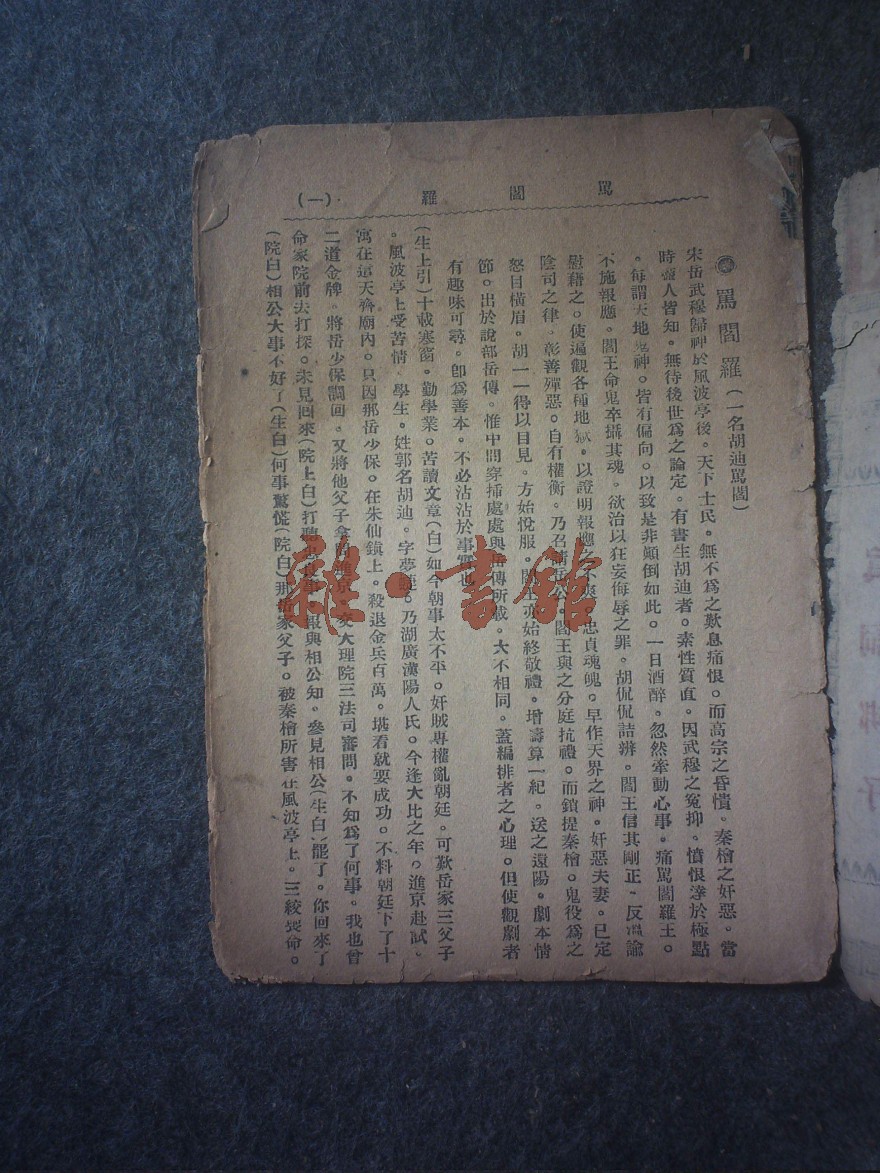 罵閻羅 (一)
罵閻羅(一名胡迪罵閻)
宋岳武穆歸神於風波亭後。天下士民。無不爲之歎息痛恨。而高宗之昏憒。秦檜之奸惡。當
時盡人皆知。無待後世爲之論定。有書生胡迪者。素性質直。因武穆之冤抑。憤恨達於極點
。每謂天地鬼神。皆有偏向。以致是非顛倒如此。一日酒醉。忽然牽動心事。痛罵閻羅王。
不施報應。閻王命鬼卒攝其魂。欲治以狂妄侮辱之罪。胡侃侃詰辨。閻王信其剛正。反溫諭
慰藉之。使遍觀各種地獄。以證明報應之不爽。忠貞魂魄。早作天界之神。奸惡夫妻。已定
陰司之律。彰善殫惡。自有權衡。乃召請岳公。閻王與之分庭抗禮。而鎖提秦檜。鬼役爲之
怒目橫眉。胡一一得以目見。方始悅服。閻王亦始終敬禮。增壽算一紀。送之還陽。劇本情
節。出於說部岳傳。惟中間穿插處處與岳傳所載。大不相同。蓋編排者之心理。但使觀劇者
有趣味可尋。卽爲善本。不必沾沾於事實也
(生上引)十載寒窗。勤學業。苦讀文章(白)如今朝事太不平。奸賊專權亂朝廷。可歎岳家三父子
。風波亭上受苦情 學生。姓郭名胡迪。字夢蓮。乃湖廣漢陽人氏。今逢大比之年。進京赴試。
寓在這天齊廟內。只因那岳少保。在朱仙鎮上。殺退金兵百萬。堪看就要成功。不料朝廷下了十
二道金牌。將岳少保調回。又將他父子拿問進京。交大理院三法司審問。不知爲了何事。我也曾
命家院前去打探。未見回來(院上白)打聽 事。報與相公知。參見相公(生白)罷了。你回來了
(院白)相公大事不好了(生白)何事驚慌(院白)那岳家父子。被秦檜所害在風波亭上。三絞喪命。
雜·書館